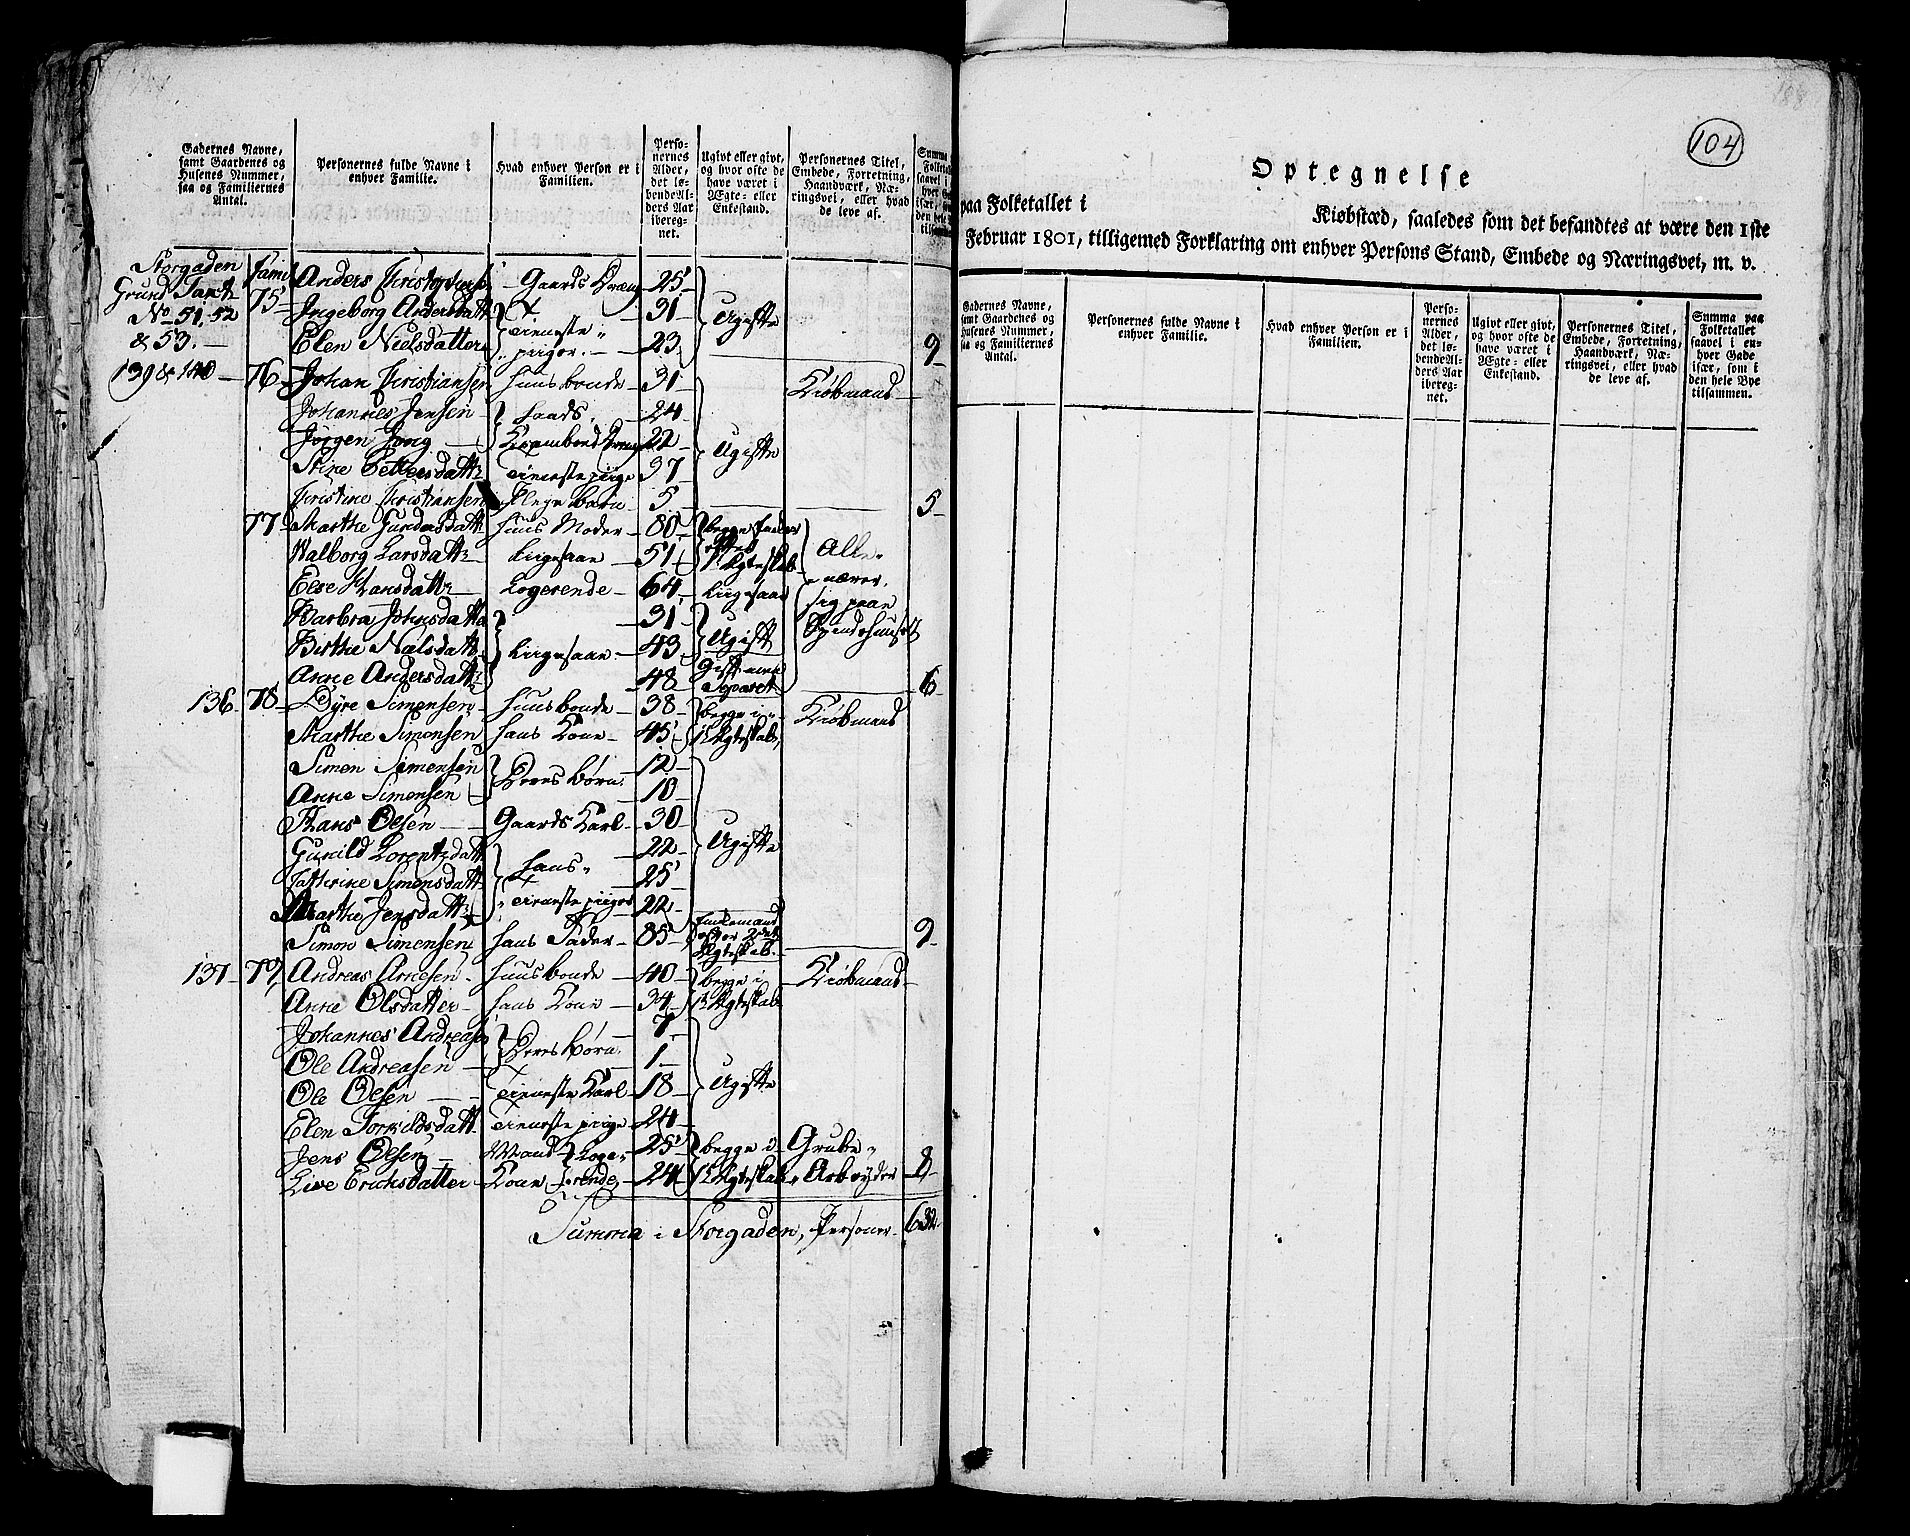 Gadernes Navne, samt Gaardenes og Husenes Nummer, saa og Familiernes Antal.
Personernes fulde Navne i enhver Familie.
Hvad enhver Person er i Familien.
Personernes Alder, det løbende Alders Aar iberegnet.
Ugivt eller givt, og hvor ofte de have været i Ægte- eller Enkestand.
Personernes Titel, Embede, Forretning, Haandværk, Næringsvei, eller hvad de leve af.
Storgaden Fami Anders Christophers Gaards Dreng 25
75 Ingeborg Andersdatt 31 Ugifte
No 51, 52
& 53. Elen Nielsdatter tieneste piiger 23 9
139 & 140 76 Johan Kristiansen Huusbonde 31 Kiøbmand
Johannes Jensen Hands 24
Jørgen Jong Krambond Dreng 22 Ugifte
Stine Pettersdattr tieneste piige 37
Kristine Kristiansen Pleye Barn 5 5
77 Marthe Gundersdatt Huus Moder 80
Walborg Larsdattr Ligesaa 51 1ste Ægteskab Alle
Else Hansdattr Logerende 64 Ligesaa nærer
Barbra Johnsdatte 31 sig paa
Birthe Nielsdattr Ligesaa 43 Ugift
Anne Andersdattr 48 6
136 78 Dyre Simensen Huusbonde 38 begge i Kiøbmand
Marthe Simonsen Hans Kone 45 1te Ægteskab
Simen Simensen Deres Børn 12
Anne Simensen 10
Hans Olsen Gaards Karl 30
Gunild Lorentzdatt 22 Ugifte
Cathrine Simonsdatt Hans 25
Marthe Jensdattr tieneste piiger 22
Simon Simensen Hans Fader 85 Enkemand efter 2det Ægteskab. 9
137 79 Andreas Arnesen Huusbonde 40 begge i Kiøbmand
Anne Olsdatter Hans Kone 34 1te Ægteskab
Johannes Andreasen 7
Ole Andreasen Deres Børn 1
Ole Olsen tieneste Karl 18 Ugifte
Elen Torkildsdatt tieneste piige 24
Jens Olsen Mand Loge- 25 begge i Grube
Live Erichsdatter Kone rende 24 1te Ægteskab Arbeyder 8
Summa i Storgaden, Personer 632
104
188
Optegnelse
paa Folketallet i Kiøbstæd, saaledes som det befandtes at være den 1ste
Februar 1801, tilligemed Forklaring om enhver Persons Stand, Embede og Næringsvei, m. v.
Gadernes Navne, samt Gaardenes og Husenes Nummer, saa og Familiernes Antal.
Personernes fulde Navne i enhver Familie.
Hvad enhver Person er i Familien.
Personernes Alder, det løbende Alders Aar iberegnet.
Ugivt eller givt, og hvor ofte de have været i Ægte- eller Enkestand.
Personernes Titel, Embede, Forretning, Haandværk, Næringsvei, eller hvad de leve af.
Summa paa Folketallet saavel i enhver Gade især, som i den hele Bye tilsammen.